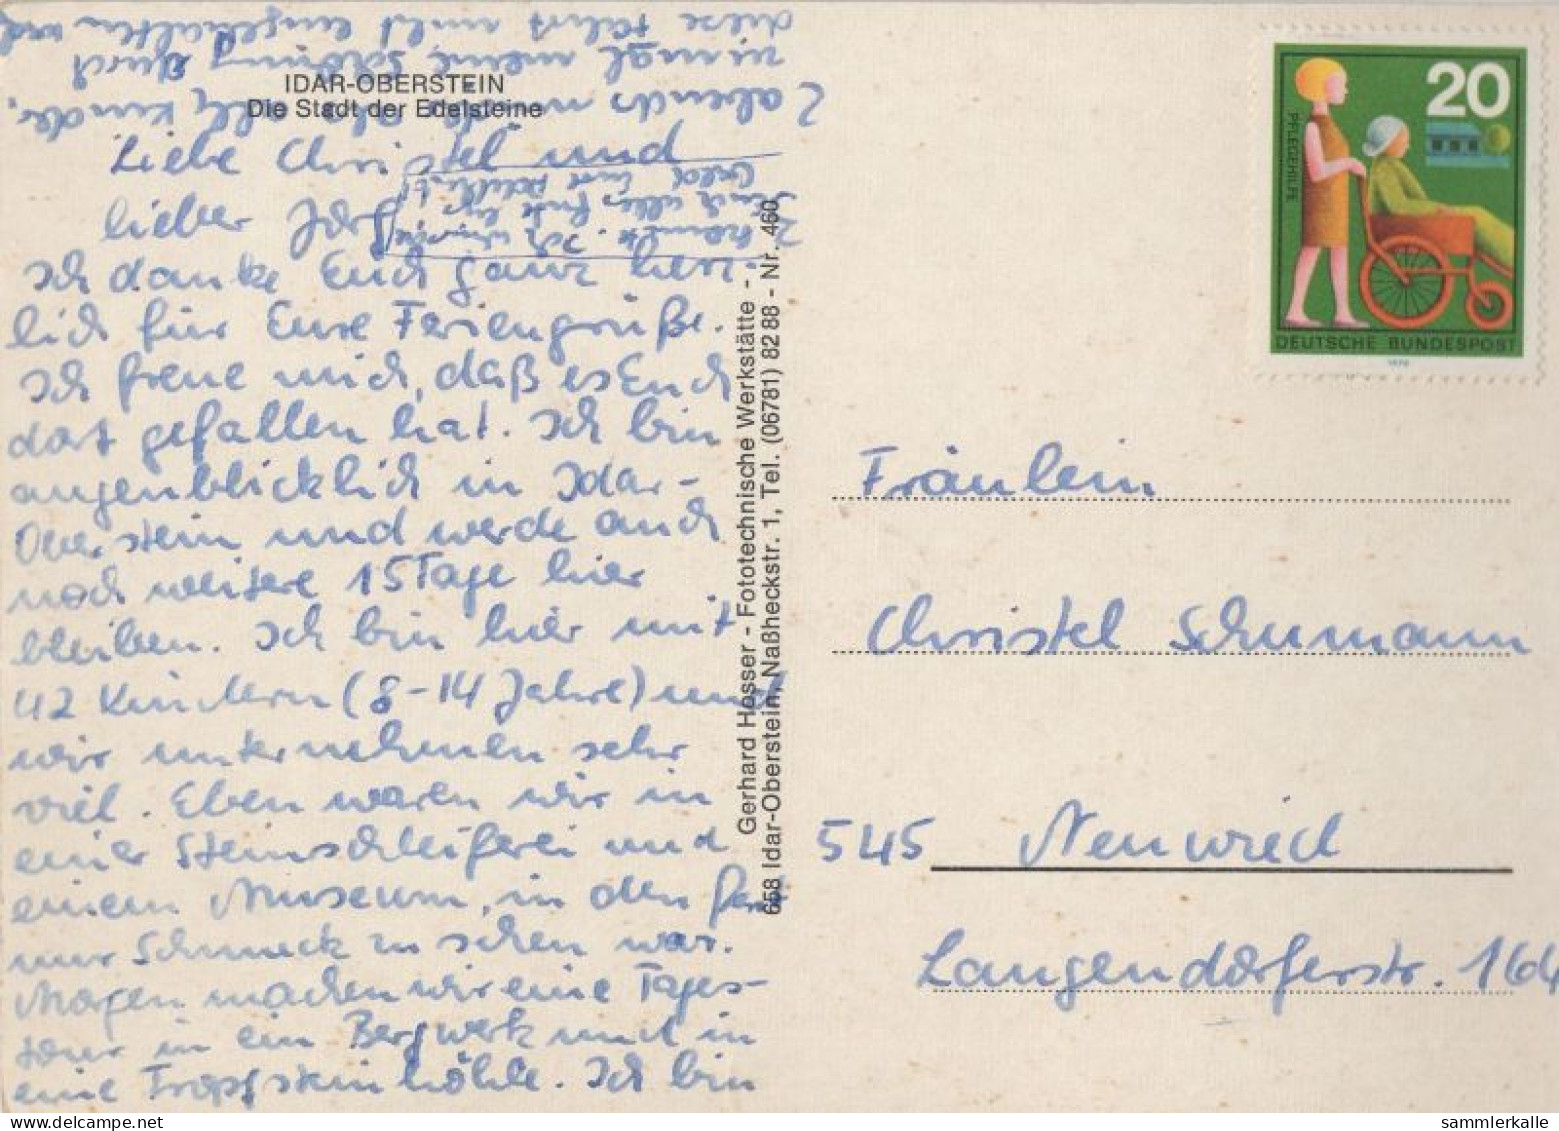 IDAR-OBERSTEIN
Die Stadt der Edelsteine
Liebe Christel und
lieber Jörg!
Ich danke Euch ganz herz-
lich für Eure Feriengrüße.
Ich freue mich, daß es Euch
dort gefallen hat. Ich bin
augenblicklich in Idar-
Oberstein und werde auch
noch weitere 15 Tage hier
bleiben. Ich bin hier mit
42 Kindern (8-14 Jahre) und
wir unternehmen sehr
viel. Eben waren wir in
einer Steinschleiferei und
einem Museum, in dem fast
nur Schmuck zu sehen war.
Morgen machen wir eine Tages-
tour in ein Bergwerk und in
eine Tropfsteinhöhle. Ich bin
abends müde, da alle Kinder,
zumal meine, Ordnung durch
diese Fahrt nicht eingehalten
Ich wünsche
Euch alles Gute bis
bald
Gerhard Hosser - Fototechnische Werkstätte -
658 Idar-Oberstein, Naßheckstr. 1, Tel. (06781) 82 88 - Nr. 460
20
PFLEGEHILFE
DEUTSCHE BUNDESPOST
1970
Fräulein
Christel Schumann
545 Neuwied
Langendorferstr. 164